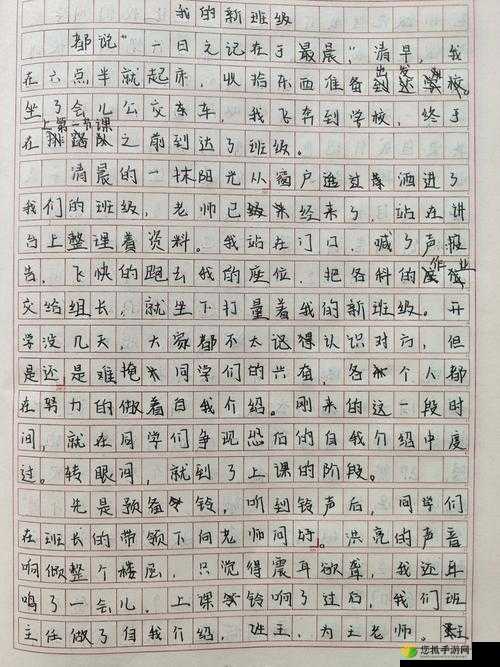 我的新班级
都说"一日之记在于最晨,"清早,我
在六点半就起床,收拾东西准备出发到学校。
坐了会儿公交车车,我飞奔到学校,终于
在上第一节课之前到达了班级。
清晨的一抹阳光从窗户透过洒进了
我们的班级,老师已经来了,站在讲
台上整理着资料。我站在门口,喊了声报
告,飞快的跑去我的座位,把各科的作业
交给组长,就坐下打量着我的新班级。开
学没几天,大家都不太认得认识对方,但
是还是难掩同学们的兴奋,各个人都
在努力的做着自我介绍。刚来的这一段时
间,就在同学们争现恐后的自我介绍中度
过。转眼间,就到了上课的阶段。
先是预备铃,听到铃声后,同学们
在班长的带领下向老师问好。洪亮的声音
响倾整个楼层,只觉得震耳欲聋,我还耳
鸣了一会儿。上课铃响了过后,我们班
主任做了自我介绍,班主,为王老师。
您抵手游网